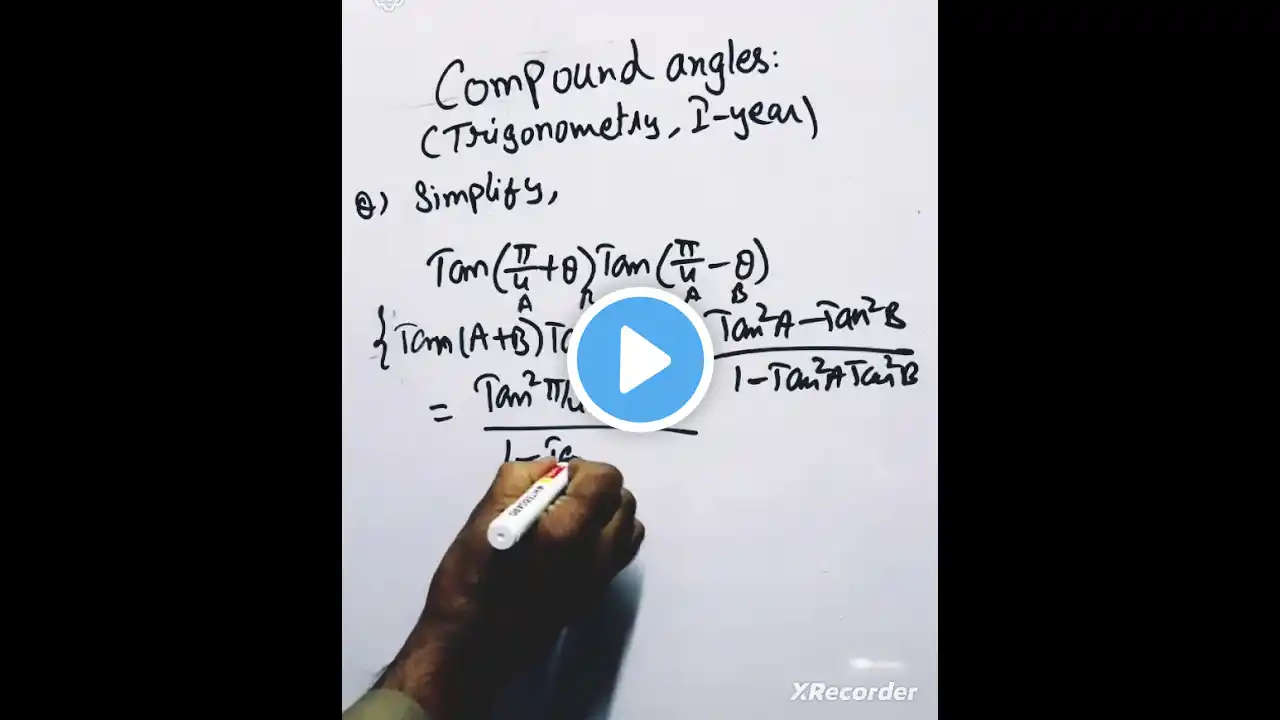 Compound angles:
(Trigonometry, I-year)
Q) Simplify,
Tan(π/4+θ)Tan(π/4-θ)
A A B
{Tan(A+B) Tan²A-Tan²B/1-Tan²ATan²B
= Tan²π/4
1-Ta
WHITEBOARD
XRecorder